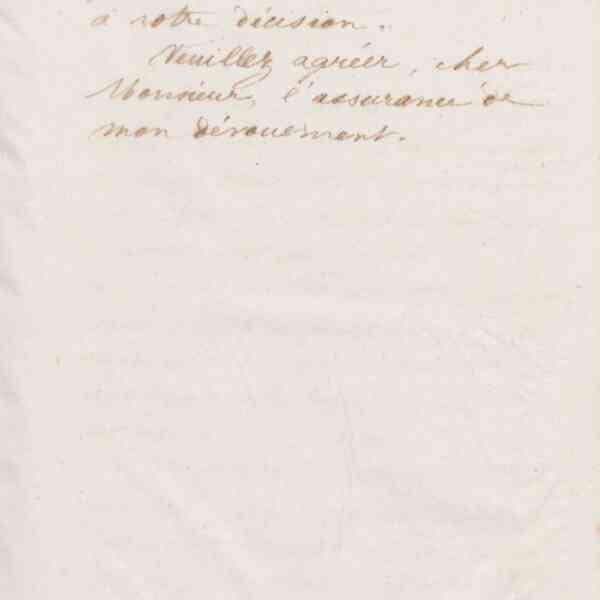 à votre décision.
Veuillez agréer, cher
Monsieur, l'assurance de
mon dévouement.